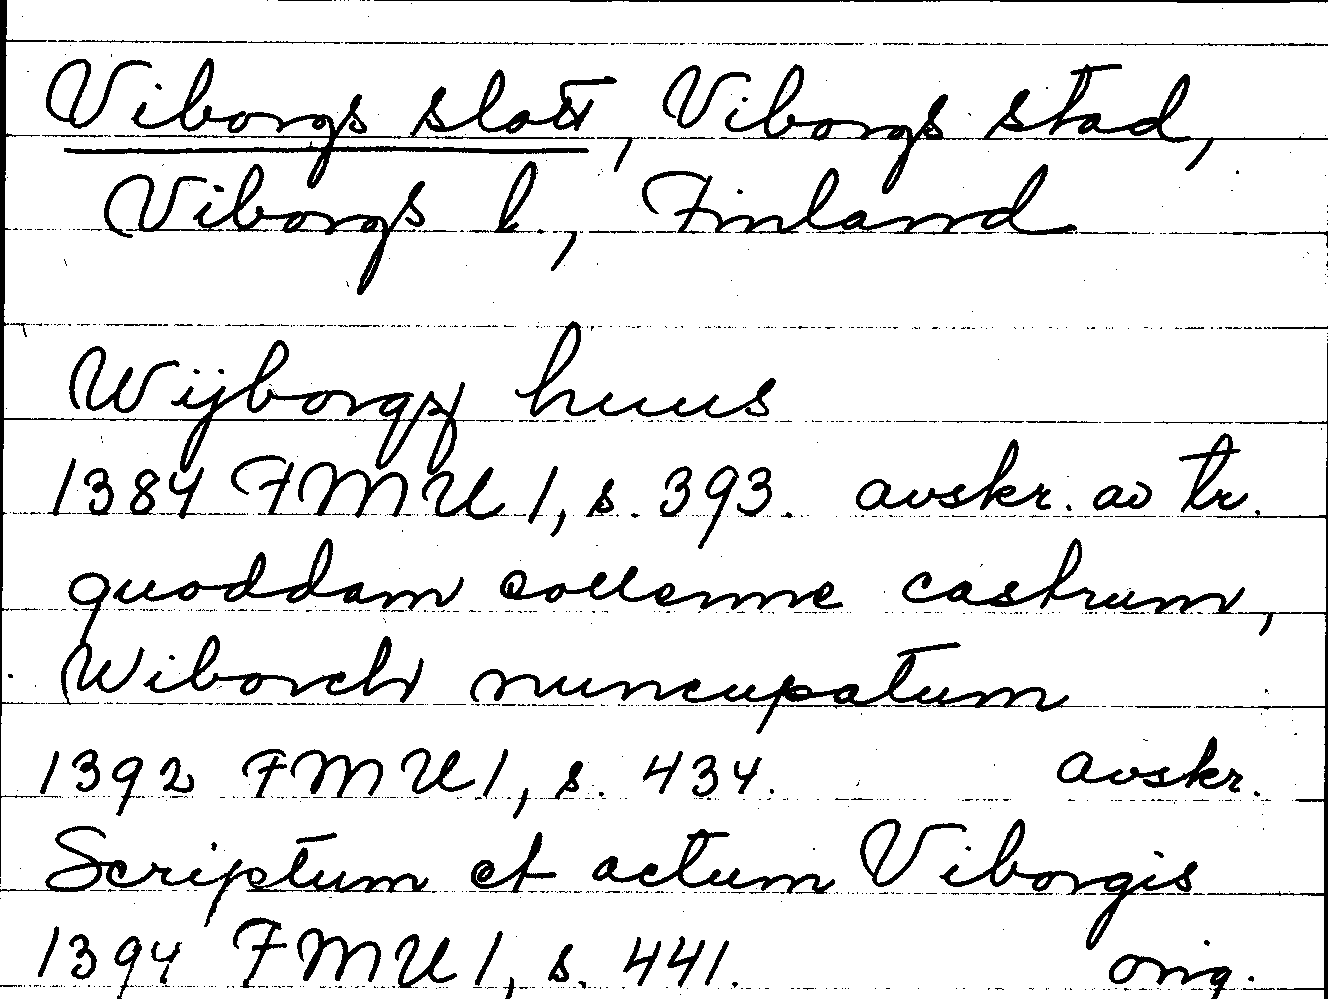 Viborgs slott, Viborgs stad,
Viborgs l., Finland
Wijborgx huus
1384 FMU 1, s. 393. avskr. av tr.
quoddam sollenne castrum,
Wiborch nuncupatum
1392 FMU 1, s. 434. avskr.
Scriptum et actum Viborgis
1394 FMU 1, s. 441. orig.